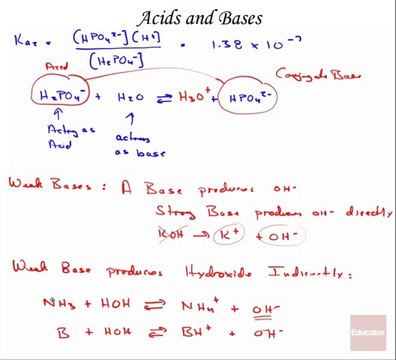 Acids and Bases
Ka2 = [HPO4²⁻][H⁺] / [H2PO4⁻] = 1.38 x 10⁻⁷
Acid
Conjugate Base
H2PO4⁻ + H2O ⇌ H3O⁺ + HPO4²⁻
Acting as Acid
acting as base
Weak Bases : A Base produces OH⁻
Strong Base produces OH⁻ directly
KOH → K⁺ + OH⁻
Weak Base produces Hydroxide Indirectly :
NH3 + HOH ⇌ NH4⁺ + OH⁻
B + HOH ⇌ BH⁺ + OH⁻
Educator